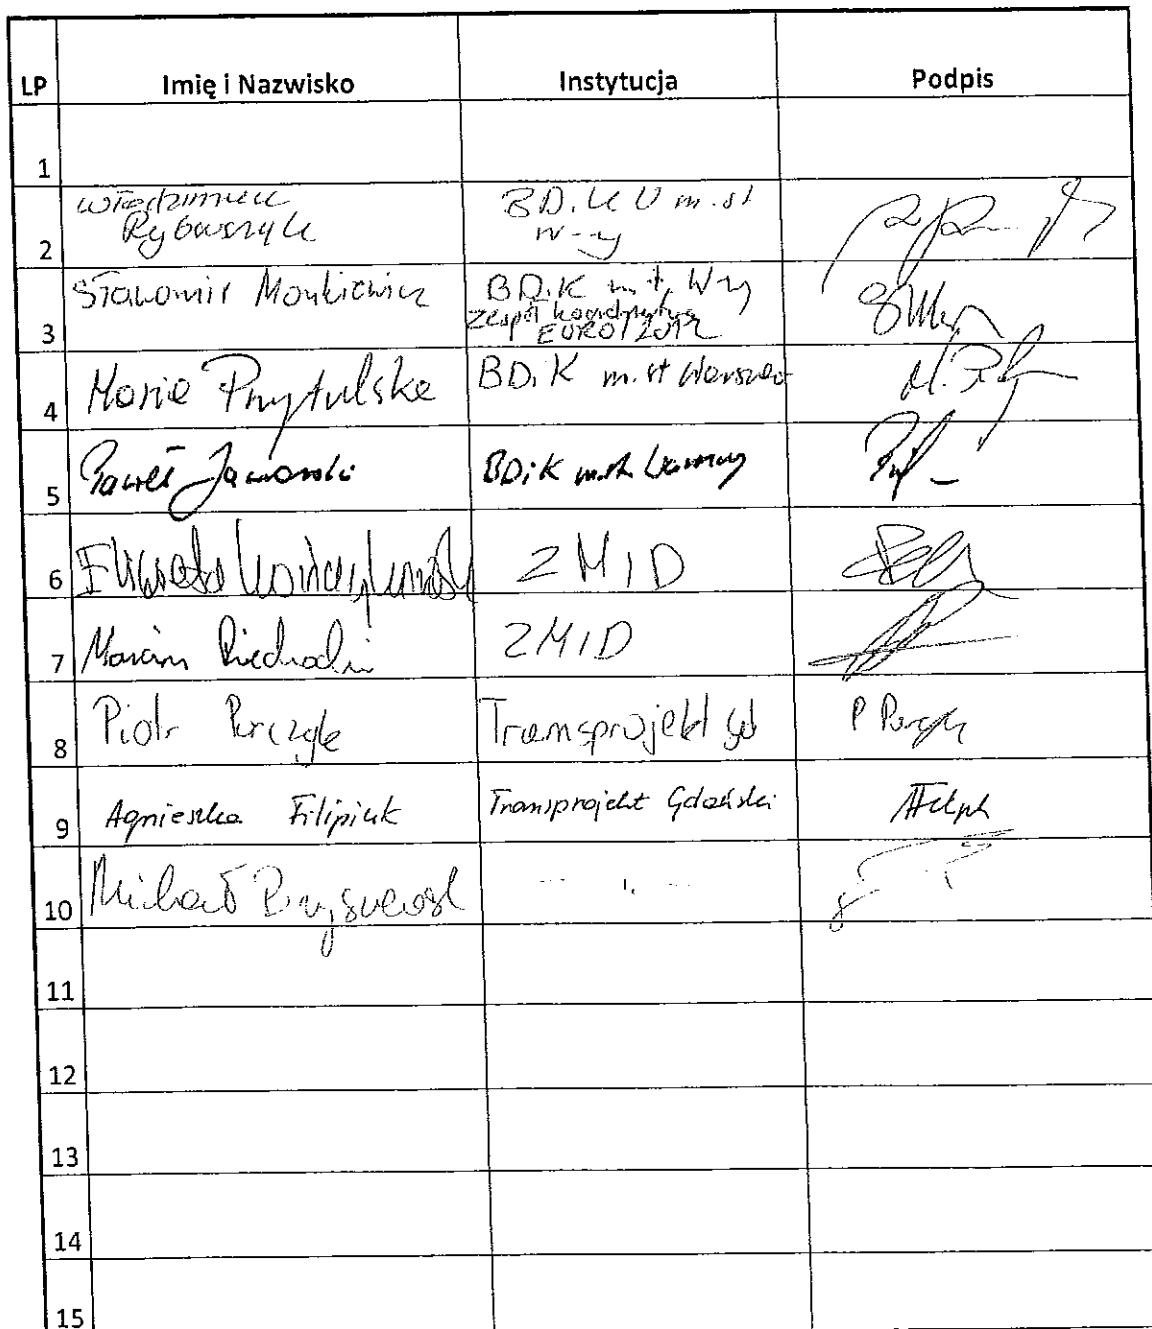 LP Imię i Nazwisko Instytucja Podpis
1
Włodzimierz BD.iK U m.st
Rybarczyk W-wy
2
Sławomir Monkiewicz BD.iK m.st. W-wy
Zespół koordynatora
EURO 2012
3
Maria Przytulska BD.iK m.st Warszawa
4
Paweł Jaworski BDiK m.st. Warszawy
5
6 Elżbieta ZMID
7 Marcin ZMID
Piotr Parczyk Transprojekt Gd P Parczyk
8
Agnieszka Filipiuk Transprojekt Gdański
9
Michał -- " --
10
11
12
13
14
15